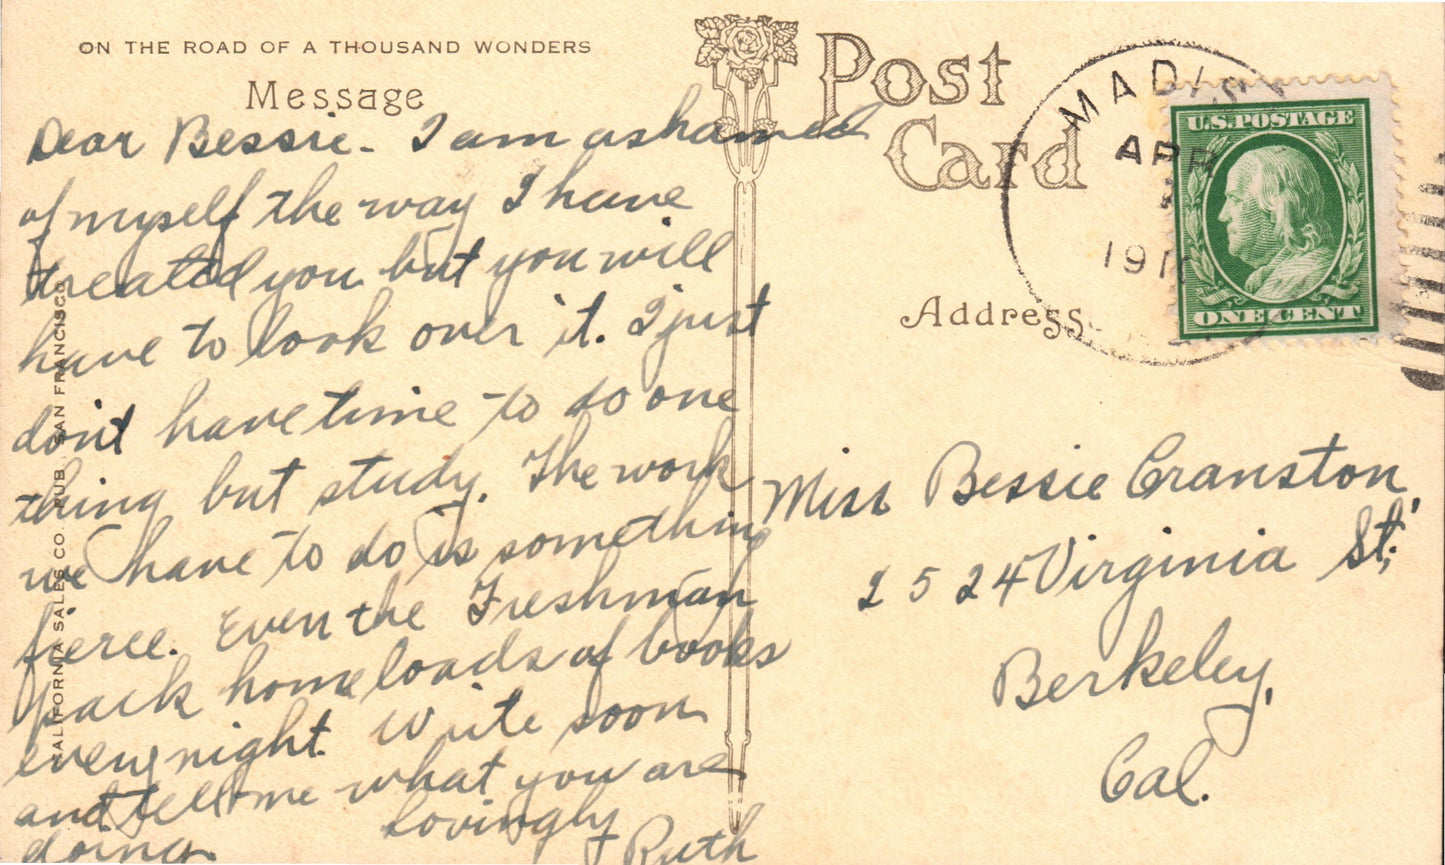 ON THE ROAD OF A THOUSAND WONDERS
Message
Dear Bessie - I am ashamed
of myself the way I have
treated you but you will
have to look over it. I just
don't have time to do one
thing but study. The work
we have to do is something
fierce. Even the Freshman
pack home loads of books
every night. Write soon
and tell me what you are
doing.
Lovingly
Ruth
CALIFORNIA SALES CO. PUB. SAN FRANCISCO
Post
Card
MADIS
APR
1910
U.S. POSTAGE
ONE CENT
Address
Miss Bessie Cranston,
2524 Virginia St.,
Berkeley,
Cal.